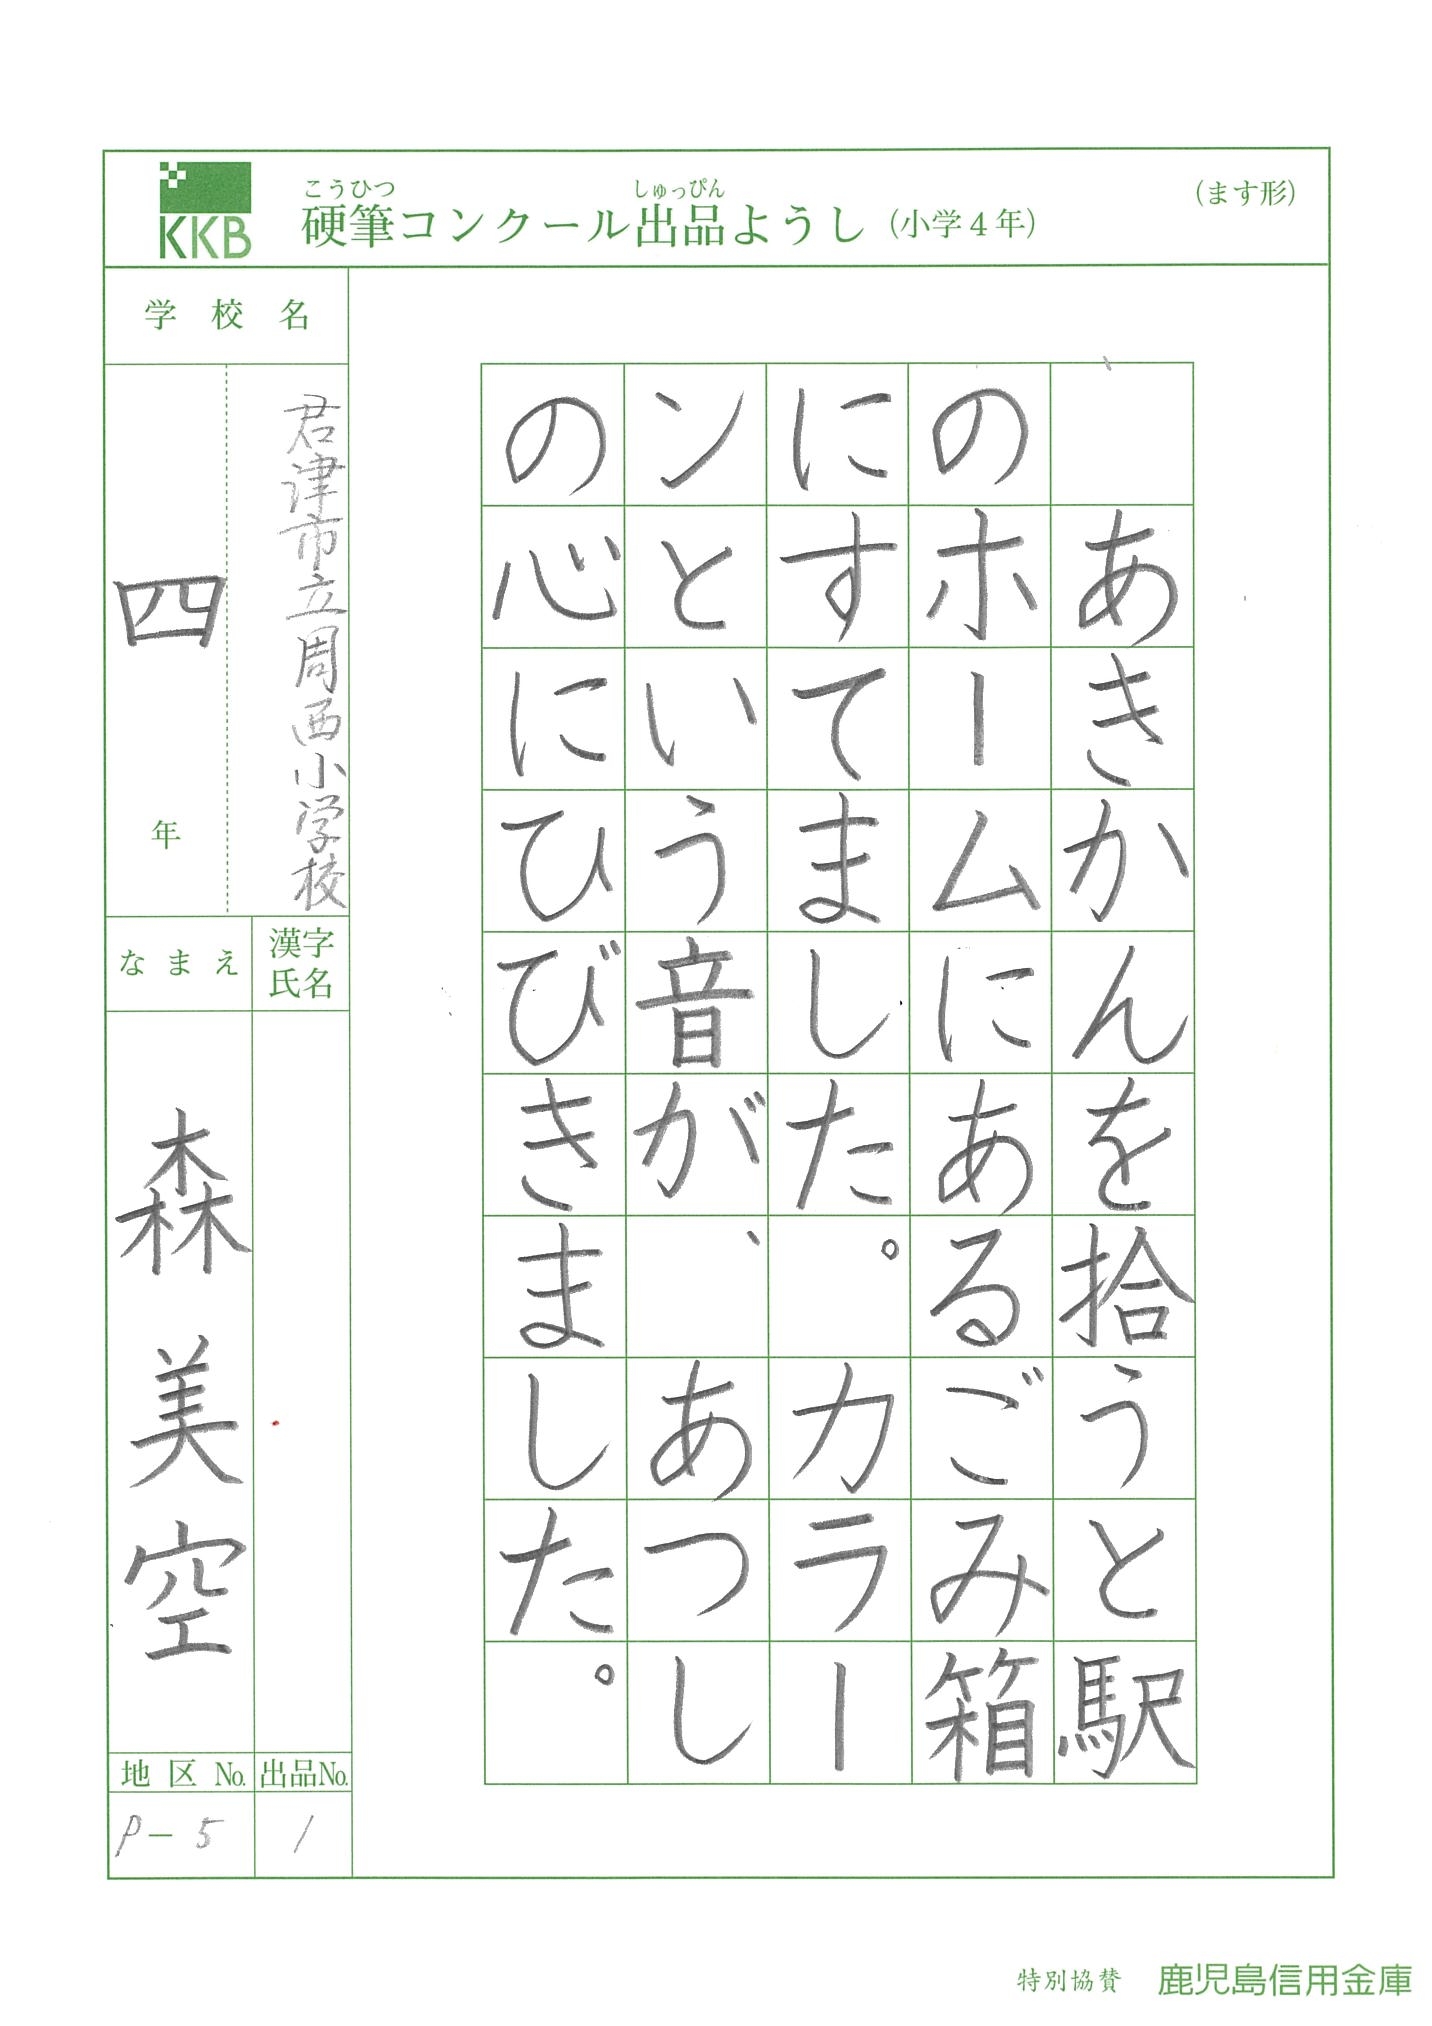 KKB
こうひつ しゅっぴん
硬筆コンクール出品ようし (小学4年)
(ます形)
あきかんを拾うと駅
のホームにあるごみ箱
にすてました。カラー
ンという音が、あつし
の心にひびきました。
学校名
君津市立周西小学校
四年
漢字氏名
なまえ
森美空
出品No.
1
地区No.
P-5
特別協賛 鹿児島信用金庫